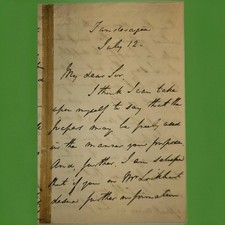 July 12.
My dear Sir.
I think I can take
upon myself to say that the
papers may be freely used
in the manner you propose
And further, I am satisfied
that if you or Mr Lockhart
desire further information